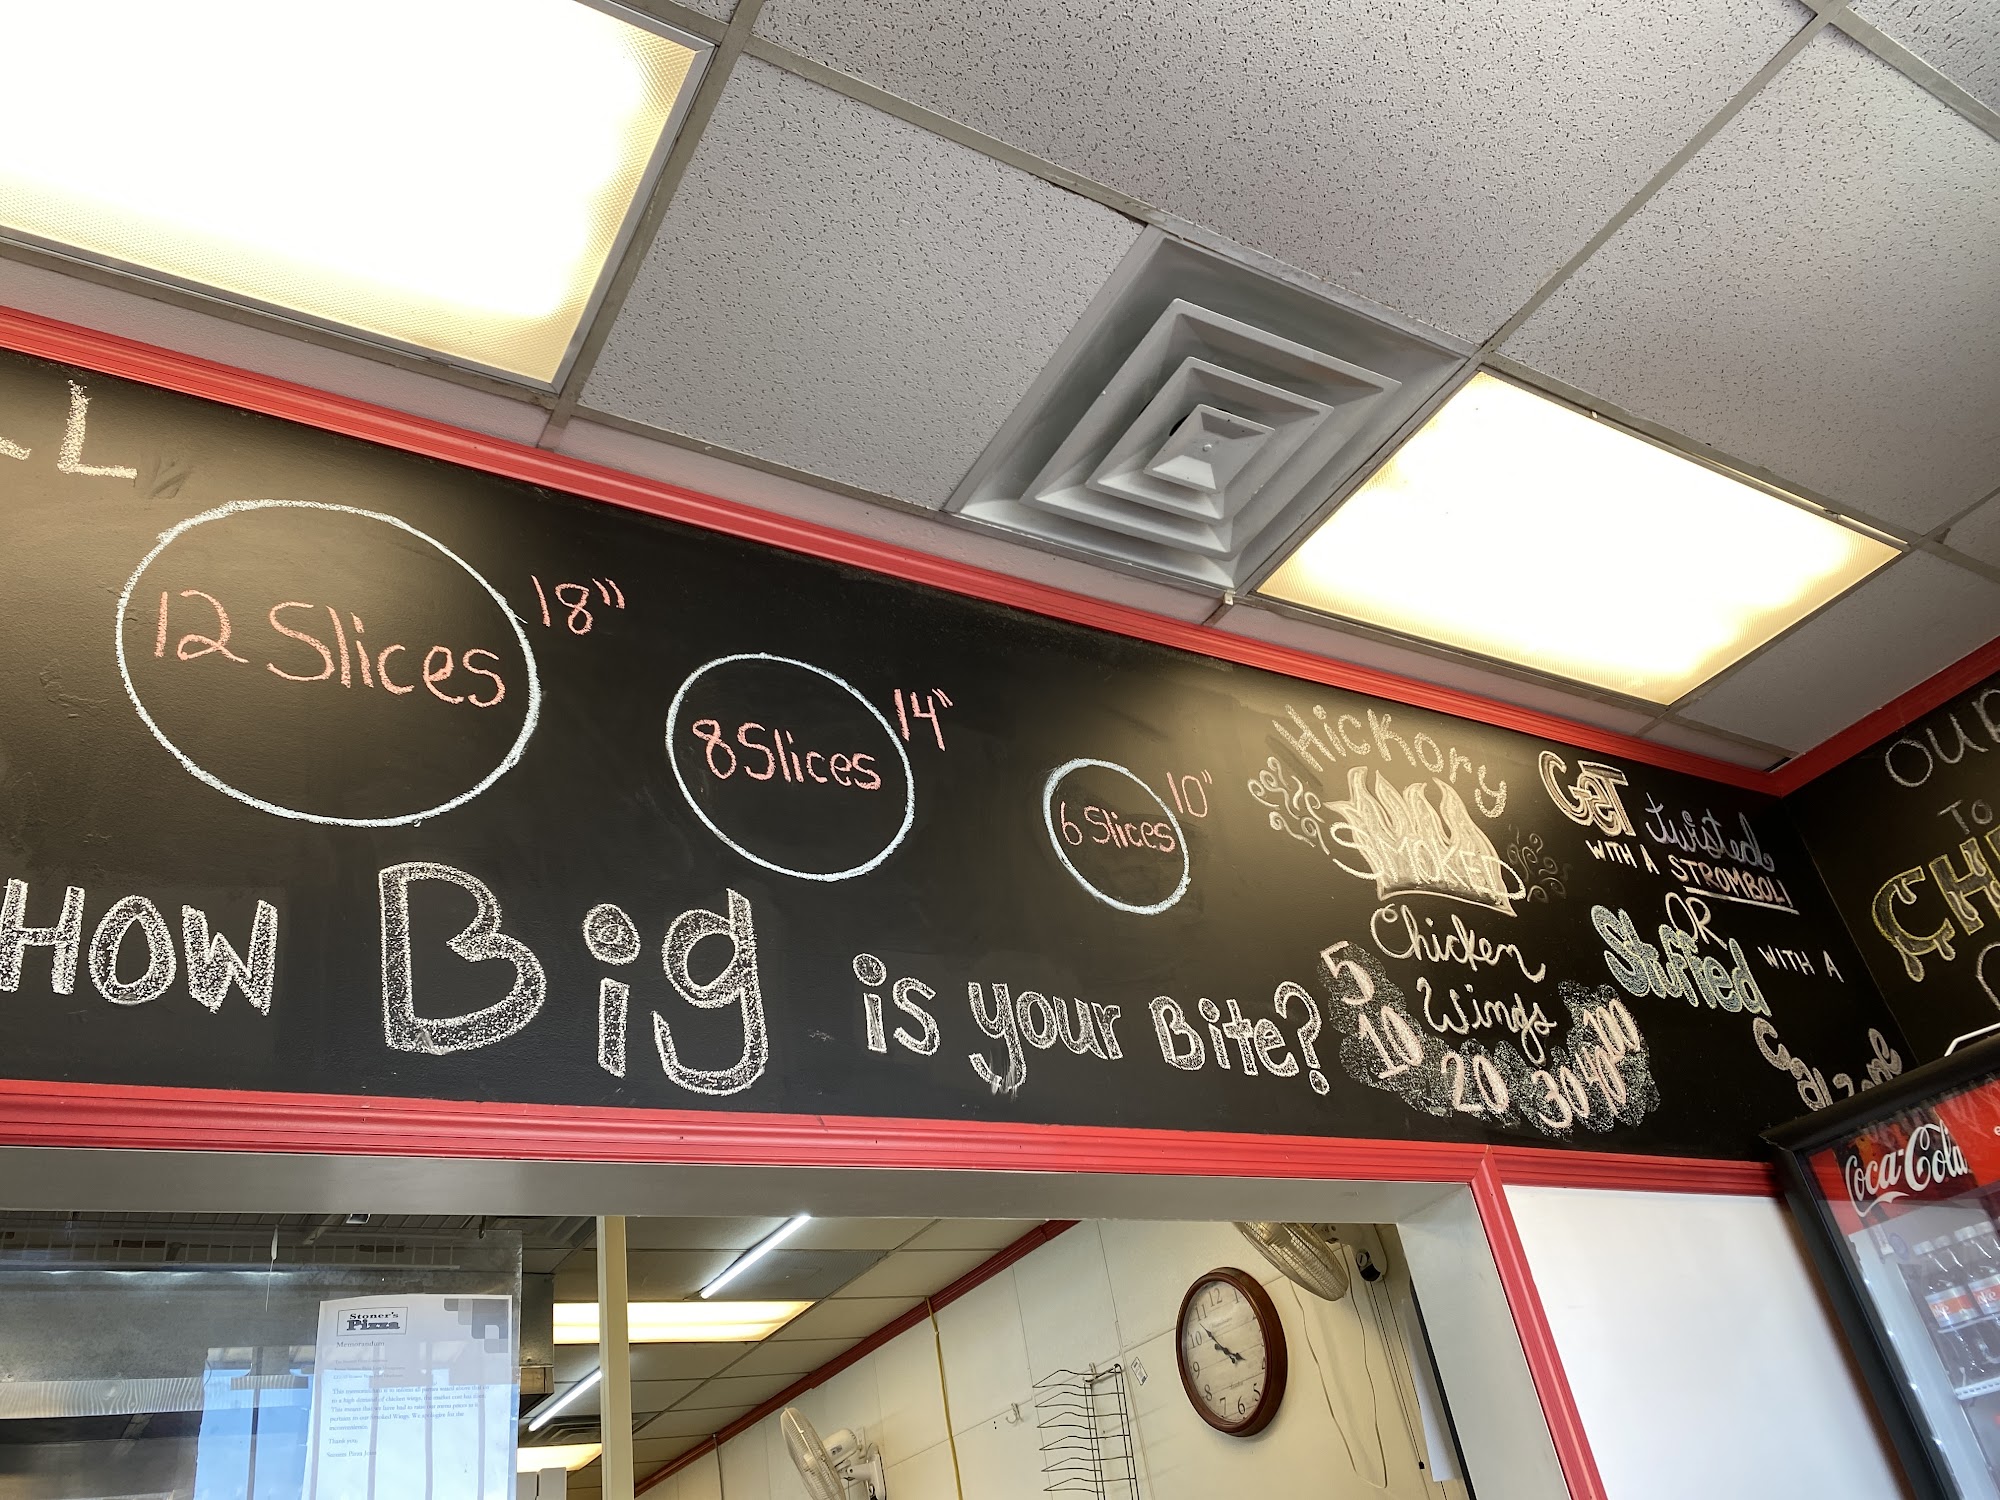 L
12 Slices
18"
8 Slices
14"
6 Slices
10"
HOW Big is your Bite?
Hickory
SMOKED
Chicken
Wings
5
10
20
30
40
100
GET twisted
WITH A STROMBOLI
OR
Stuffed WITH A
Calzone
OUR
TO
Coca-Cola
Stoner's
Pizza
Memorandum
Thank you,
12
10
9
8
7
6
5